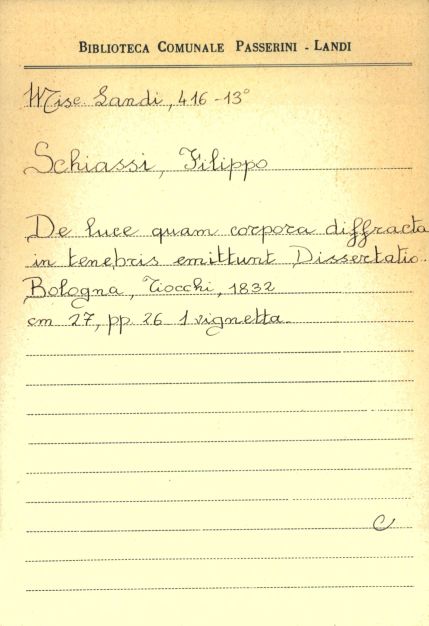 BIBLIOTECA COMUNALE PASSERINI - LANDI
Misc Landi, 416-13°
Schiassi, Filippo
De luce quam corpora diffracta
in tenebris emittunt Dissertatio.
Bologna, Tiocchi, 1832
cm 27, pp. 26 1 vignetta.
C